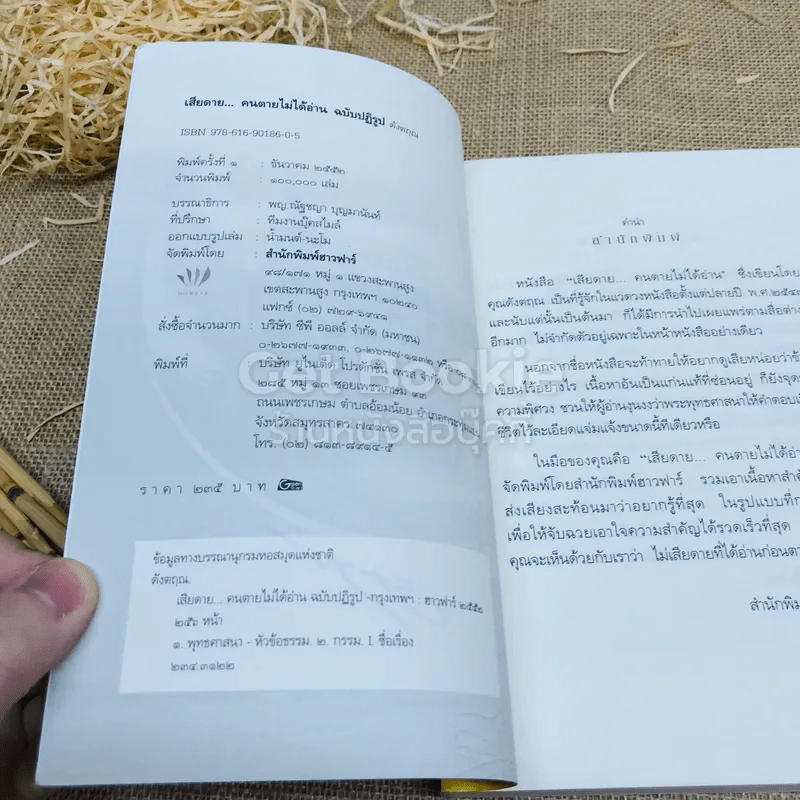 เสียดาย... คนตายไม่ได้อ่าน ฉบับปฏิรูป ดังตฤณ
ISBN 978-616-90186-0-5
พิมพ์ครั้งที่ ๑ : ธันวาคม ๒๕๕๒
จำนวนพิมพ์ : ๑๐๐,๐๐๐ เล่ม
บรรณาธิการ : พญ.ณัฐชญา บุญมานันท์
ที่ปรึกษา : ทีมงานบุ๊คสไมล์
ออกแบบรูปเล่ม : น้ำมนต์-นะโม
จัดพิมพ์โดย : สำนักพิมพ์ฮาวฟาร์
๔๘/๑๗๑ หมู่ ๑ แขวงสะพานสูง
เขตสะพานสูง กรุงเทพฯ ๑๐๒๔๐
แฟกซ์ (๐๒) ๗๒๙-๖๙๔๑
HOWFAR
สั่งซื้อจำนวนมาก : บริษัท ซีพี ออลล์ จำกัด (มหาชน)
๐-๒๖๗๗-๑๙๓๓,
พิมพ์ที่ : บริษัท ยูไนเต็ด โปรดักชั่น เพรส จำกัด
๒๘๕ หมู่ ๑๓ ซอยเพชรเกษม
ถนนเพชรเกษม ตำบลอ้อมน้อย อำเภอกระทุ่มแบน
จังหวัดสมุทรสาคร ๗๔๑๓๐
โทร. (๐๒) ๘๑๓-๘๙๑๔-๕
ราคา ๒๓๕ บาท
ข้อมูลทางบรรณานุกรมหอสมุดแห่งชาติ
ดังตฤณ.
เสียดาย... คนตายไม่ได้อ่าน ฉบับปฏิรูป -กรุงเทพฯ : ฮาวฟาร์ ๒๕๕๒
๒๕๖ หน้า
๑. พุทธศาสนา - หัวข้อธรรม. ๒. กรรม. I. ชื่อเรื่อง
๒๙๔.๓๑๒๒
คำนำ
สำนักพิมพ์
หนังสือ "เสียดาย... คนตายไม่ได้อ่าน" ซึ่งเขียนโดย
คุณดังตฤณ เป็นที่รู้จักในแวดวงหนังสือตั้งแต่ปลายปี พ.ศ.
และนับแต่นั้นเป็นต้นมา ก็ได้มีการนำไปเผยแพร่ตามสื่อต่าง
อีกมาก ไม่จำกัดตัวอยู่เฉพาะในหน้าหนังสืออย่างเดียว
นอกจากชื่อหนังสือจะท้าทายให้อยากดูเสียหน่อยว่าข้าง
เขียนไว้อย่างไร เนื้อหาอันเป็นแก่นแท้ที่ซ่อนอยู่ ก็ยังจุด
ความพิศวง ชวนให้ผู้อ่านงุนงงว่าพระพุทธศาสนาให้คำตอบ
ชีวิตไว้ละเอียดแจ่มแจ้งขนาดนี้ทีเดียวหรือ
ในมือของคุณคือ "เสียดาย... คนตายไม่ได้อ่าน
จัดพิมพ์โดยสำนักพิมพ์ฮาวฟาร์ รวมเอาเนื้อหาสำคั
ส่งเสียงสะท้อนมาว่าอยากรู้ที่สุด ในรูปแบบที่
เพื่อให้จับฉวยเอาใจความสำคัญได้รวดเร็วที่สุด
คุณจะเห็นด้วยกับเราว่า ไม่เสียดายที่ได้อ่านก่อนตา
สำนักพิม
Get Bookie
ร้านหนังสือบุ๊คกี้